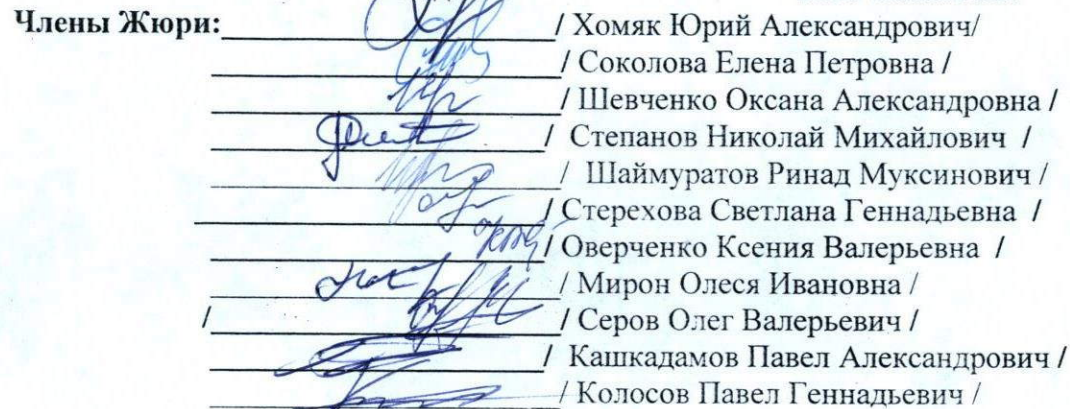 Члены Жюри:____________________/ Хомяк Юрий Александрович/
____________________/ Соколова Елена Петровна /
____________________/ Шевченко Оксана Александровна /
____________________/ Степанов Николай Михайлович /
____________________/ Шаймуратов Ринад Муксинович /
____________________/ Стерехова Светлана Геннадьевна /
____________________/ Оверченко Ксения Валерьевна /
____________________/ Мирон Олеся Ивановна /
/____________________/ Серов Олег Валерьевич /
____________________/ Кашкадамов Павел Александрович /
____________________/ Колосов Павел Геннадьевич /